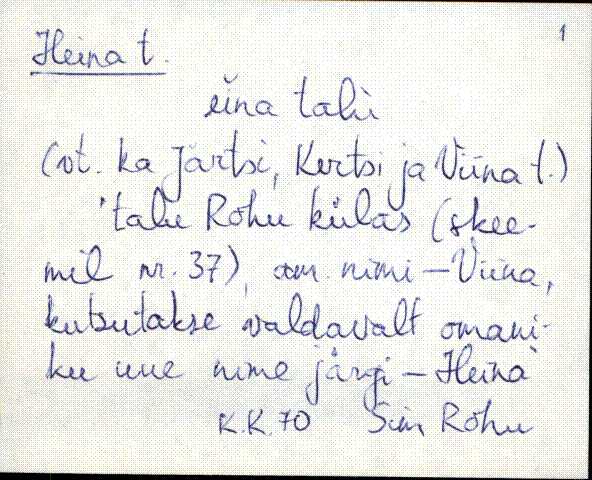 1
Heina t.
eina talù
(vt. ka Järtsi, Kertsi ja Viina t.)
'talu Rohu külas (skee-
mil nr. 37), am. nimi – Viina,
kutsutakse valdavalt omani-
ku uue nime järgi – Heina'
K.K. 70 Sim, Rohu